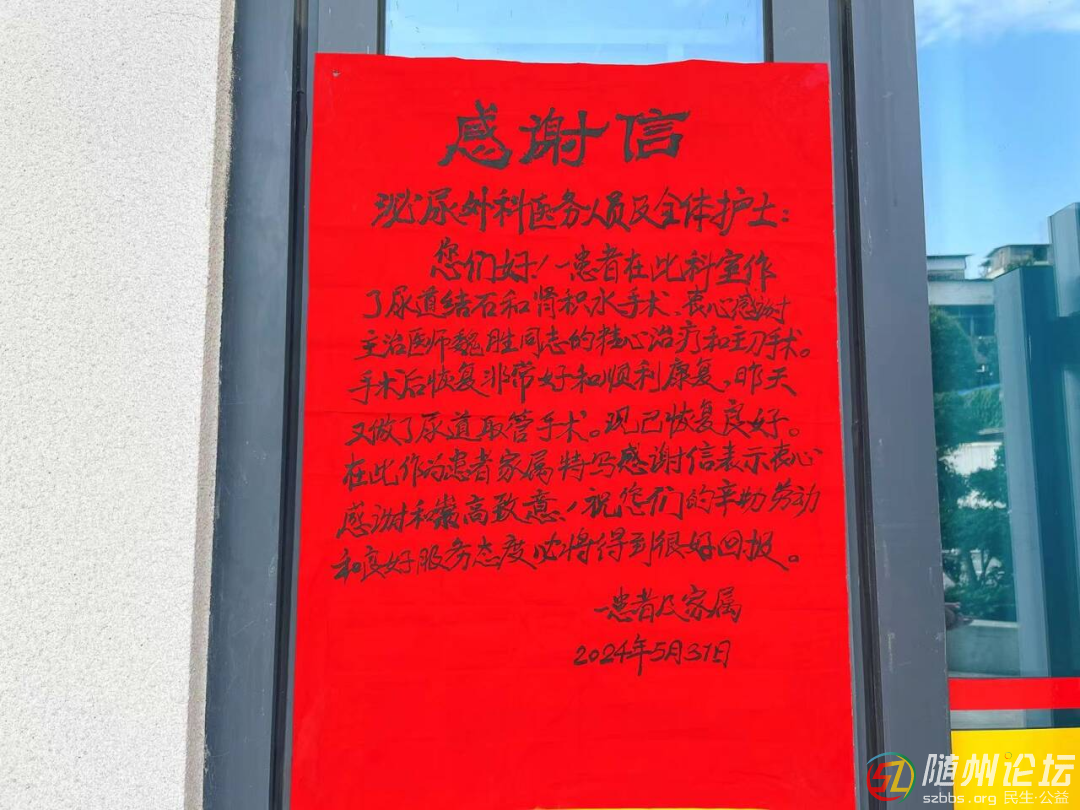 感谢信
泌尿外科医务人员及全体护士：
您们好！一患者在此科室作
了尿道结石和肾积水手术、衷心感谢
主治医师魏胜同志的精心治疗和主刀手术。
手术后恢复非常好和顺利康复，昨天
又做了尿道取管手术。现已恢复良好。
在此作为患者家属特写感谢信表示衷心
感谢和崇高致意！祝您们的辛勤劳动
和良好服务态度必将得到很好回报。
一患者及家属
2024年5月31日
随州论坛
szbbs.org 民生·公益